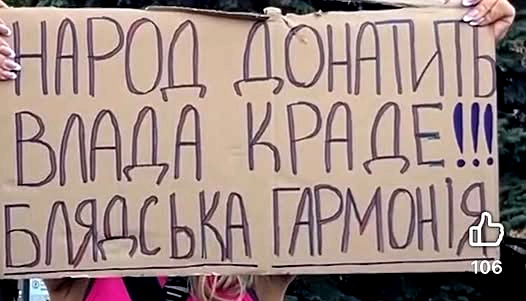 НАРОД ДОНАТИТЬ
ВЛАДА КРАДЕ!!!
БЛЯДСЬКА ГАРМОНІЯ
106